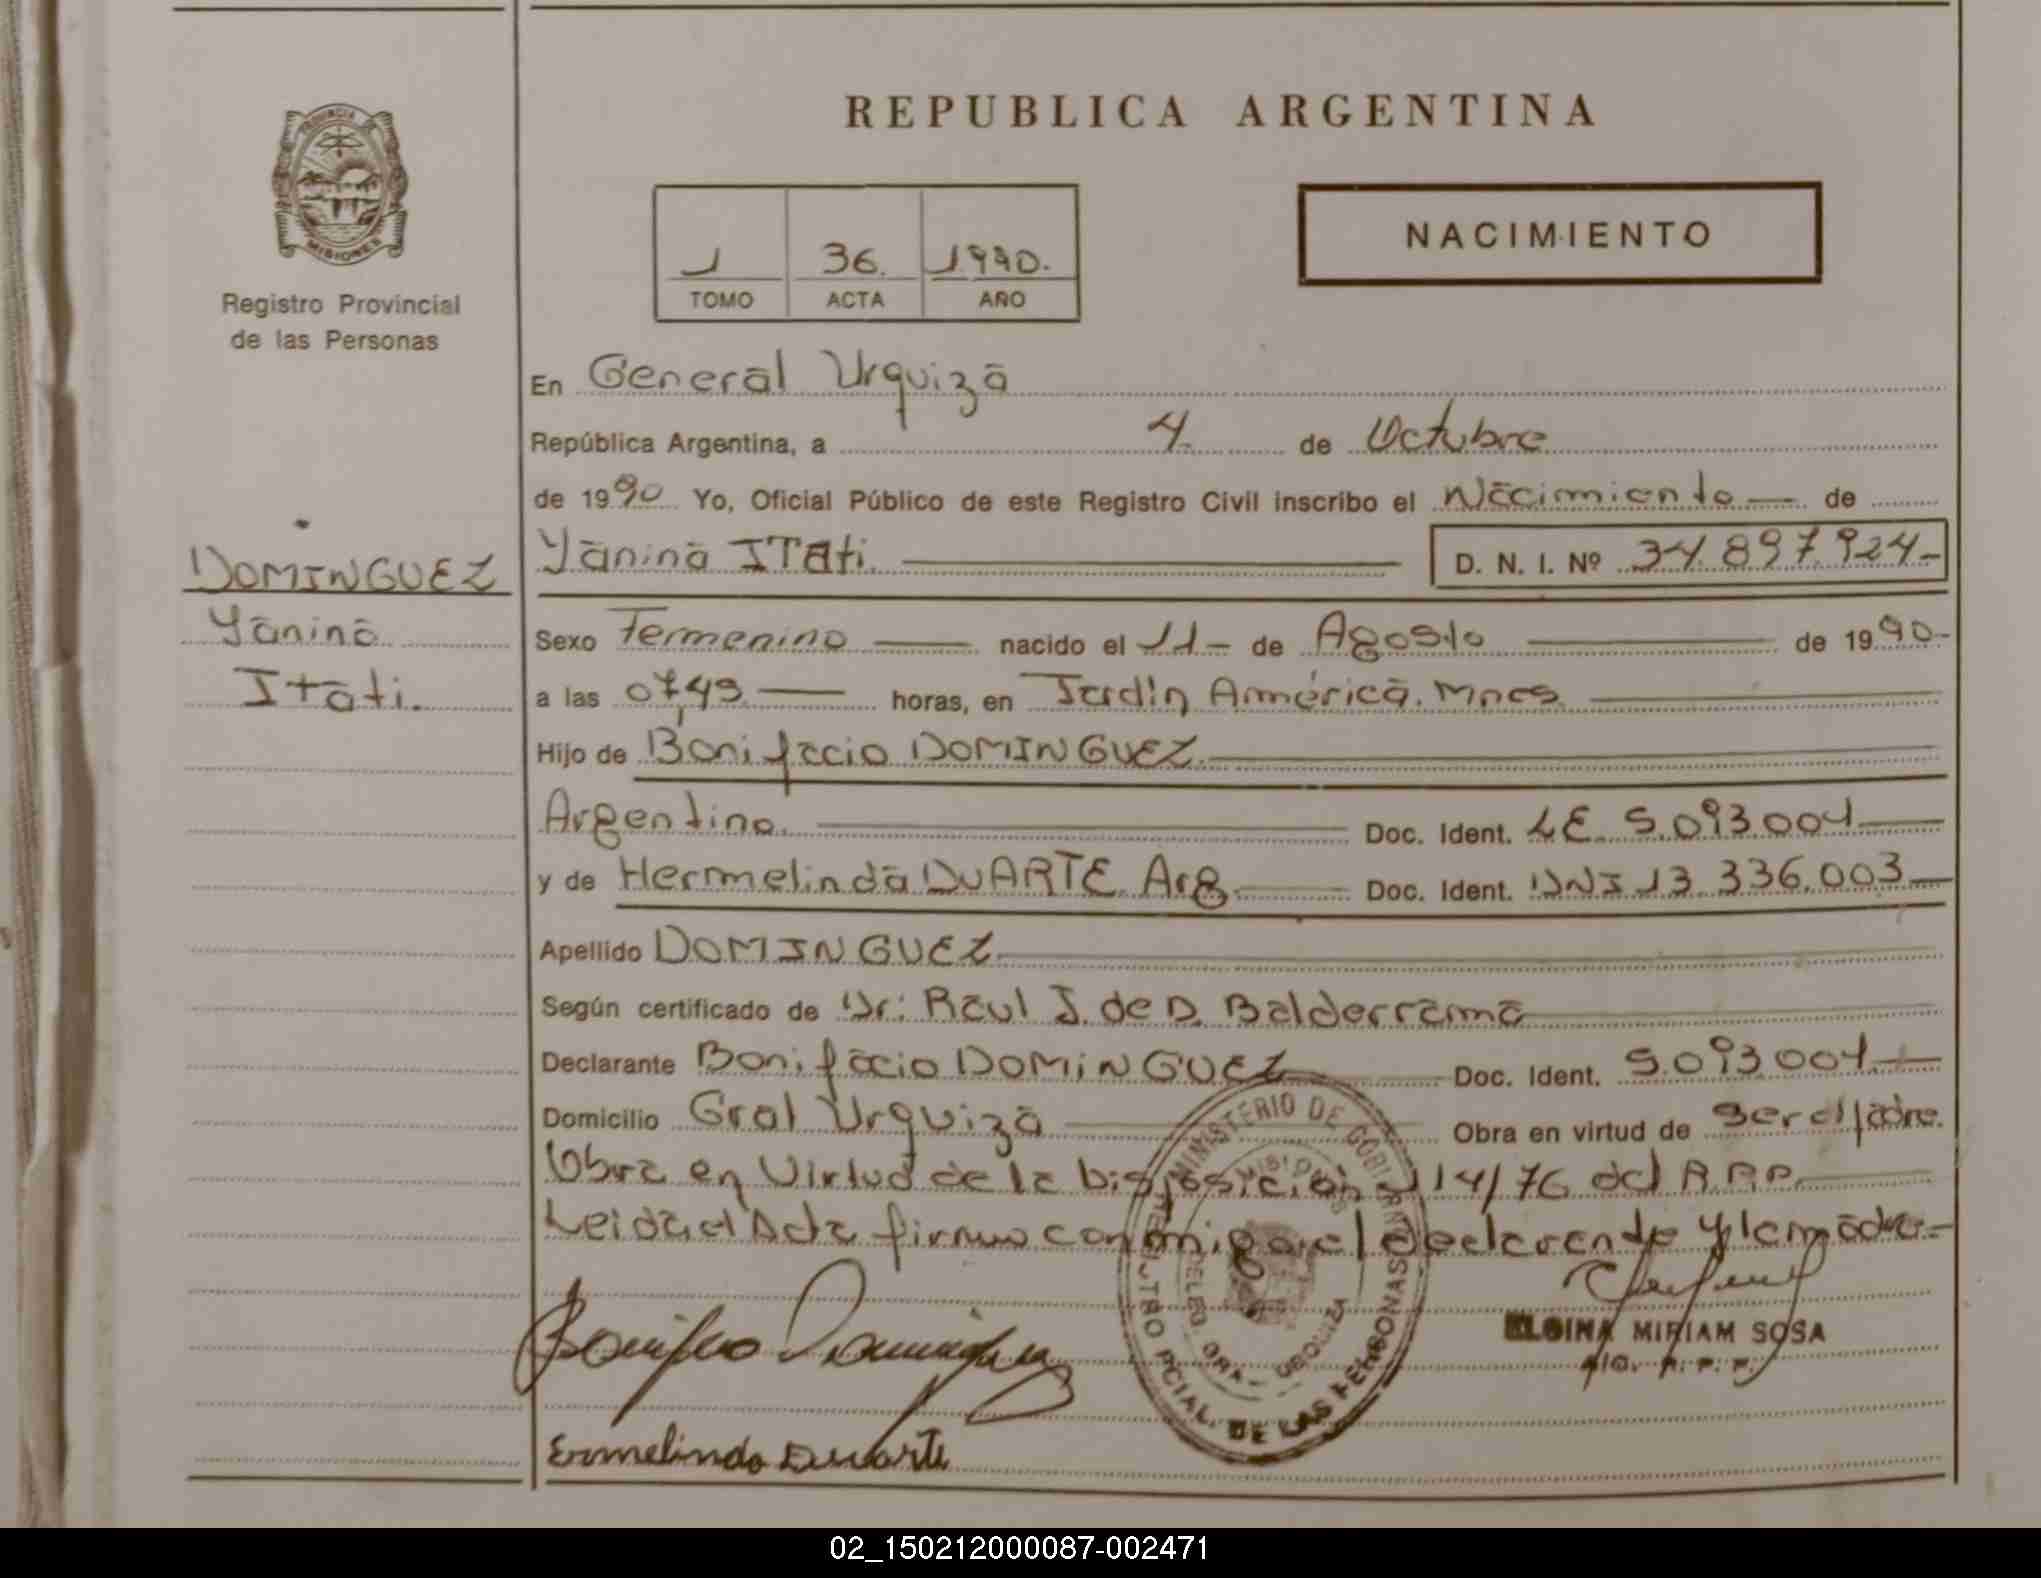 REPUBLICA ARGENTINA
PROVINCIA DE
MISIONES
Registro Provincial
de las Personas
1 36. 1990.
TOMO ACTA AÑO
NACIMIENTO
En General Urquiza
República Argentina, a 4 de Octubre
de 1990 Yo, Oficial Público de este Registro Civil inscribo el Nacimiento — de
DOMINGUEZ
Yanina
Itati.
Yanina ITAti. D. N. I. Nº 34.897.924-
Sexo Femenino — nacido el 11 - de Agosto — de 1990-
a las 07,45 — horas, en Jardin América. Mnes
Hijo de Bonifacio DOMINGUEZ
Argentino. Doc. Ident. LE 5.093.004
y de Hermelinda DUARTE Arg. Doc. Ident. DNI 13.336.003
Apellido DOMINGUEZ
Según certificado de Dr: Raul J. de D. Balderrama
Declarante Bonifacio DOMINGUEZ Doc. Ident. 5.093.004
Domicilio Gral Urquiza Obra en virtud de ser el padre.
Obra en Virtud de la Disposición 114/76 del R.P.P.
Leida el Acta firman conmigo el declarante y la madre-
MINISTERIO DE GOBIERNO
MISIONES
DELEG. GRAL. URQUIZA
REGISTRO PCIAL. DE LAS PERSONAS
Bonifacio Dominguez
ELGINA MIRIAM SOSA
R. P. P.
Ermelinda Duarte
02_150212000087-002471